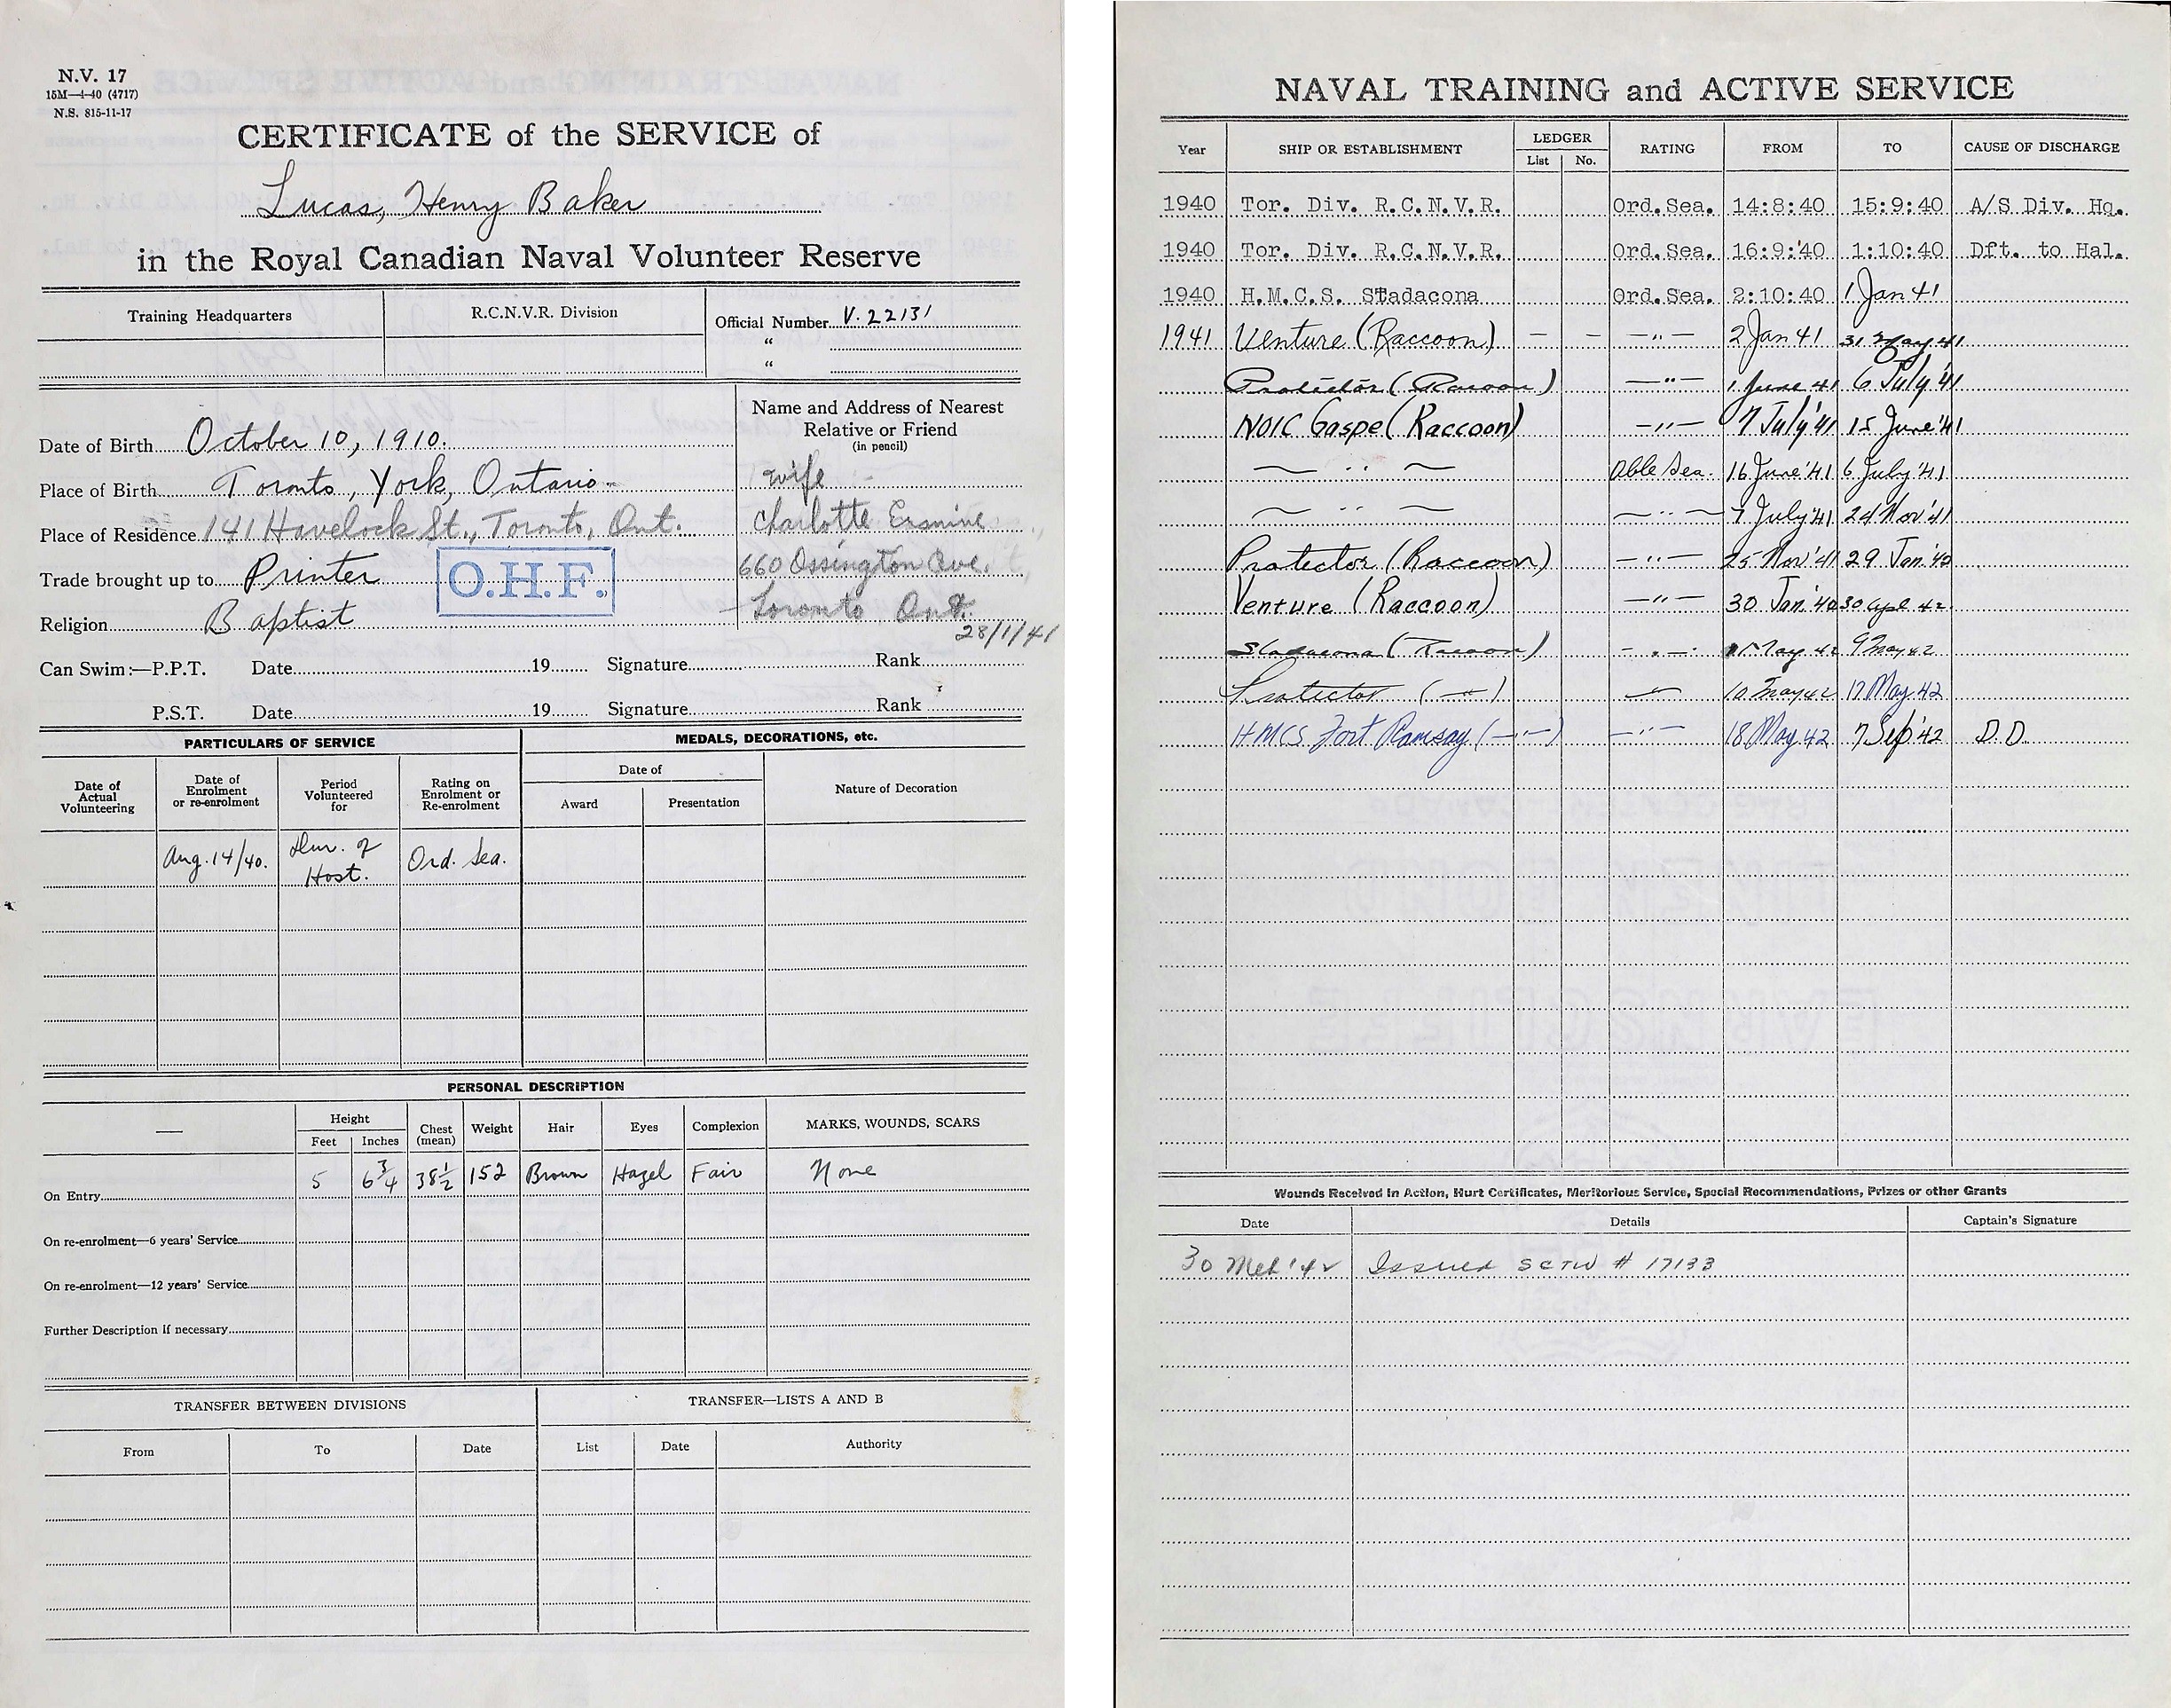 N.V. 17
15M—4-40 (4717)
N.S. 815-11-17
CERTIFICATE of the SERVICE of
Lucas, Henry Baker
in the Royal Canadian Naval Volunteer Reserve
Training Headquarters R.C.N.V.R. Division Official Number V.22131
"
"
Name and Address of Nearest Relative or Friend
(in pencil)
Date of Birth October 10, 1910.
Place of Birth Toronto, York, Ontario wife
Place of Residence 141 Havelock St., Toronto, Ont. Charlotte Ermine
Trade brought up to Printer O.H.F. 660 Ossington Ave.
Religion Baptist Toronto Ont.
28/1/41
Can Swim:—P.P.T. Date 19 Signature Rank
P.S.T. Date 19 Signature Rank
PARTICULARS OF SERVICE MEDALS, DECORATIONS, etc.
Date of Actual Volunteering Date of Enrolment or re-enrolment Period Volunteered for Rating on Enrolment or Re-enrolment Date of Award Presentation Nature of Decoration
Aug. 14/40. Dur. of Host. Ord. Sea.
PERSONAL DESCRIPTION
Height Feet Inches Chest (mean) Weight Hair Eyes Complexion MARKS, WOUNDS, SCARS
On Entry 5 6 3/4 38 1/2 152 Brown Hazel Fair None
On re-enrolment—6 years' Service
On re-enrolment—12 years' Service
Further Description if necessary
TRANSFER BETWEEN DIVISIONS TRANSFER—LISTS A AND B
From To Date List Date Authority
NAVAL TRAINING and ACTIVE SERVICE
Year SHIP OR ESTABLISHMENT LEDGER List No. RATING FROM TO CAUSE OF DISCHARGE
1940 Tor. Div. R.C.N.V.R. Ord.Sea. 14:8:40 15:9:40 A/S Div. Hq.
1940 Tor. Div. R.C.N.V.R. Ord.Sea. 16:9:40 1:10:40 Dft. to Hal.
1940 H.M.C.S. Stadacona Ord.Sea. 2:10:40 1 Jan 41
1941 Venture (Raccoon) — — —"— 2 Jan 41 31 May 41
Protector (Racoon) —"— 1 June 41 6 July '41
NOIC Gaspe (Raccoon) —"— 7 July '41 15 June '41
— " — Able Sea. 16 June '41 6 July '41
— " — —"— 7 July '41 24 Nov '41
Protector (Raccoon) —"— 25 Nov '41 29 Jan '42
Venture (Raccoon) —"— 30 Jan '42 30 Apl 42
Stadacona (Racoon) —"— 1 May 42 9 May 42
Protector (—"—) —"— 10 May 42 17 May 42
HMCS Fort Ramsay (—"—) —"— 18 May 42 7 Sep '42 D.D.
Wounds Received in Action, Hurt Certificates, Meritorious Service, Special Recommendations, Prizes or other Grants
Date Details Captain's Signature
30 Mch '42 Issued SCTW # 17133